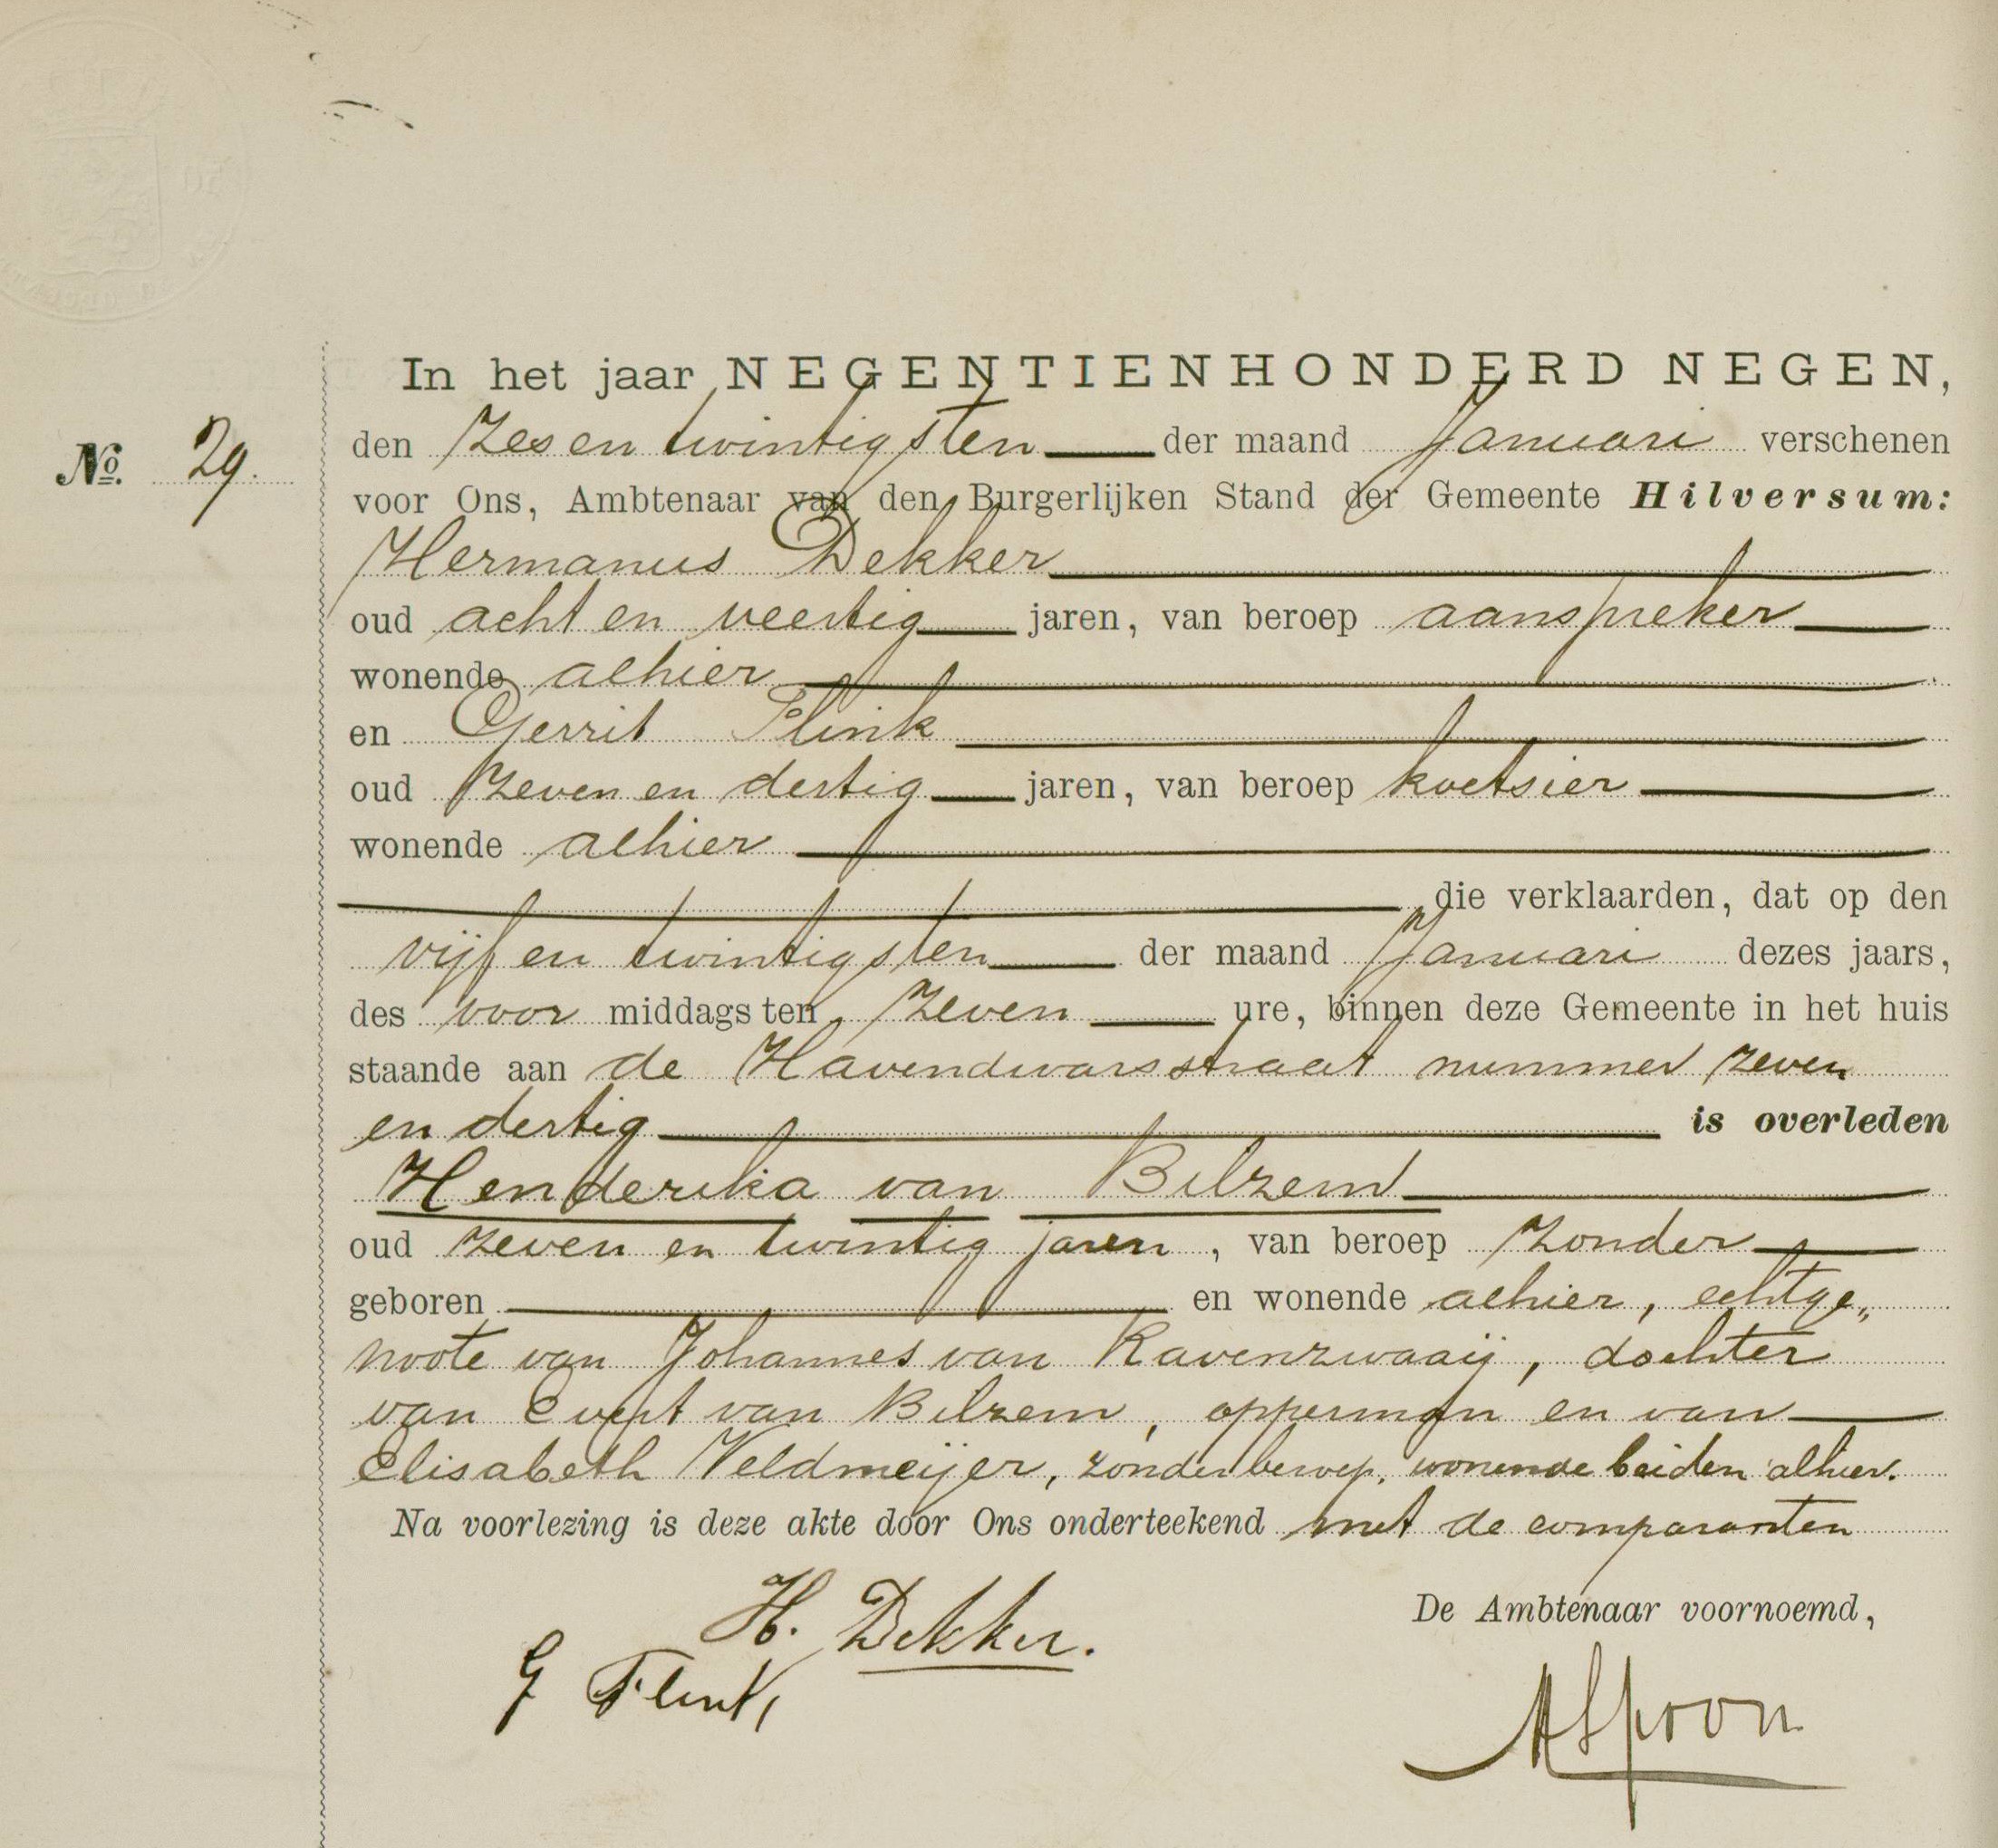 In het jaar NEGENTIENHONDERD NEGEN,
No. 29.
den zes en twintigsten der maand Januari verschenen
voor Ons, Ambtenaar van den Burgerlijken Stand der Gemeente Hilversum:
Hermanus Dekker
oud acht en veertig jaren, van beroep aanspreker
wonende alhier
en Gerrit Flink
oud zeven en dertig jaren, van beroep koetsier
wonende alhier
die verklaarden, dat op den
vijf en twintigsten der maand Januari dezes jaars,
des voor middags ten zeven ure, binnen deze Gemeente in het huis
staande aan de Havendwarsstraat nummer zeven
en dertig is overleden
Henderika van Bilzem
oud zeven en twintig jaren, van beroep zonder
geboren en wonende alhier, echtge„
noote van Johannes van Ravenzwaaij, dochter
van Evert van Bilzem, opperman en van
Elisabeth Veldmeijer, zonder beroep, wonende beiden alhier.
Na voorlezing is deze akte door Ons onderteekend met de comparanten
H. Dekker.
De Ambtenaar voornoemd,
G Flink